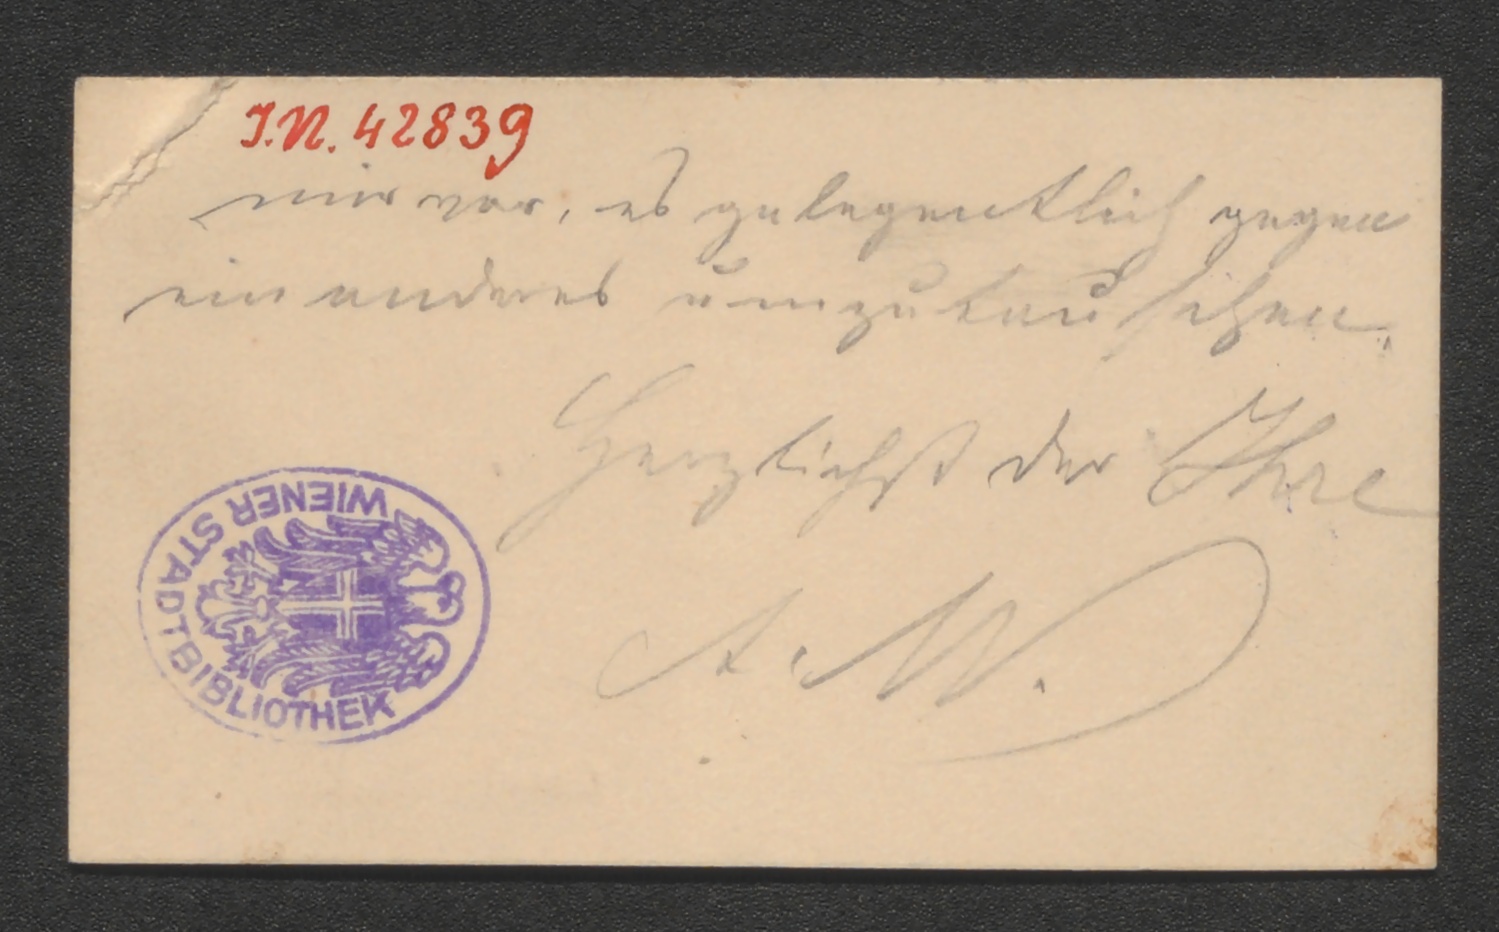 I.N. 42839
mir vor, es gelegentlich gegen
ein anderes umzutauschen.
Herzlichst der Ihre
A. W.
WIENER STADTBIBLIOTHEK